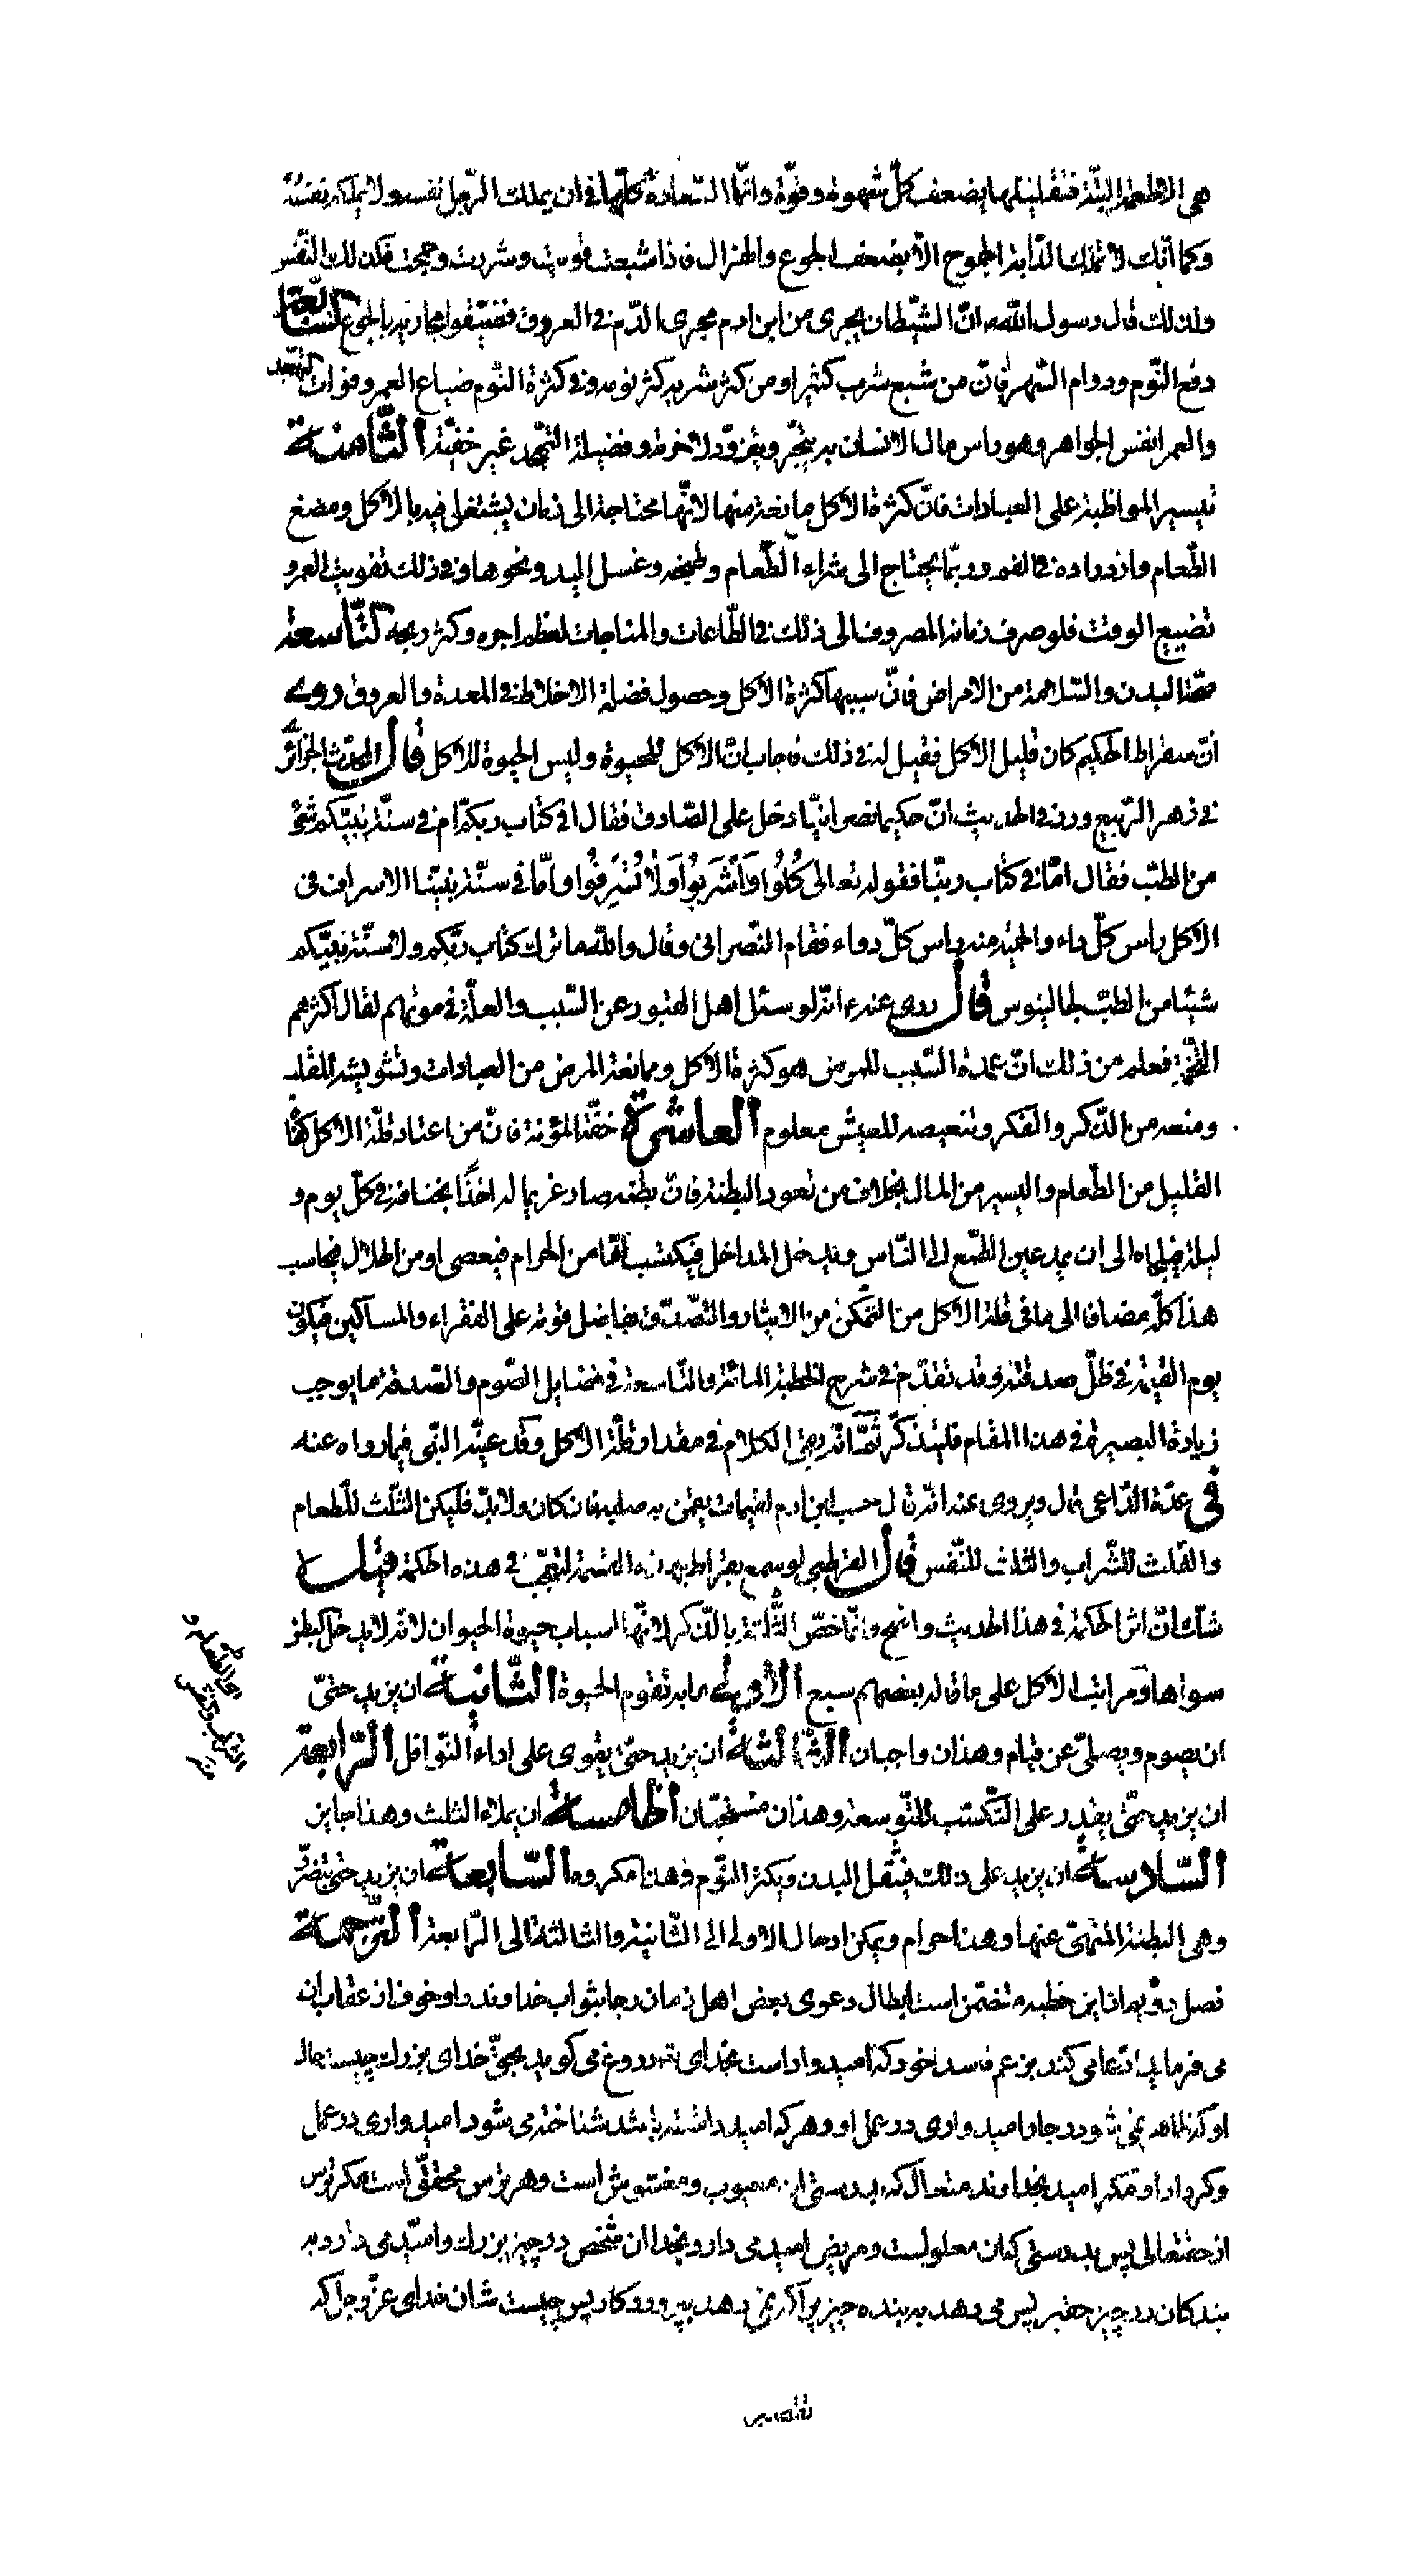 هى الاطعمة البتّة فتقليلها يضعف كلّ شهوة وقوّة وانّما السّعادة كلّها فى ان يملك الرّجل نفسه ولا يملكه نفسه
وكما انّك لا تملك الدّابّة الجموح الّا بضعف الجوع والهزال فاذا شبعت قويت وشردت وجمحت فكذلك النّفس
ولذلك قال رسول اللّه انّ الشّيطان يجرى من ابن ادم مجرى الدّم فى العروق فضيّقوا مجاريه بالجوع السّابعة
دفع النّوم ودوام السّهر فانّ من شبع شرب كثيرا ومن كثر شربه كثر نومه وفى كثرة النّوم ضياع العمر وفوات التّهجّد
والعمر انفس الجواهر وهو راس مال الانسان به يتّجر ويتزوّد لاخرته وفضيلة التّهجّد غير خفيّة الثّامنة
تيسير المواظبة على العبادات فانّ كثرة الاكل مانعة منها لانّها محتاجة الى زمان يشتغل فيه بالاكل ومضغ
الطّعام وازدراده فى الفم وربّما يحتاج الى شراء الطّعام وطبخه وغسل اليد ونحوها وفى ذلك تفويت العمر و
تضييع الوقت فلو صرف زمانه المصروف الى ذلك فى الطّاعات والمناجات لعظم اجره وكثر ربحه التّاسعة
صحّة البدن والسّلامة من الامراض فانّ سببها كثرة الاكل وحصول فضلة الاخلاط فى المعدة والعروق روى
انّ سقراط الحكيم كان قليل الاكل فقيل له فى ذلك فاجاب انّ الاكل للحيوة وليس الحيوة للاكل قال المحدّث الجزائرى
فى زهر الرّبيع ورد فى الحديث انّ حكيما نصرانيّا دخل على الصّادق فقال افى كتاب ربكم ام فى سنّة نبيّكم شئ
من الطبّ فقال امّا فى كتاب ربّنا فقوله تعالى كُلُوا وَاشْرَبُوا وَلا تُسْرِفُوا وامّا فى سنّة نبيّنا الاسراف فى
الاكل راس كلّ داء والحمية منه راس كلّ دواء فقام النّصرانى وقال واللّه ما ترك كتاب ربّكم ولا سنّة نبيّكم
شيئا من الطبّ لجالينوس قال روى عنه ع انّه لو سئل اهل القبور عن السّبب والعلّة فى موتهم لقال اكثرهم
التّخمة فعلم من ذلك انّ عمدة السّبب للمرض هو كثرة الاكل وممانعة المرض من العبادات وتشويشه للقلب
ومنعه من الذّكر والفكر وتنغيصه للعيش معلوم العاشرة خفّة المؤنة فانّ من اعتاد قلّة الاكل كفاه
القليل من الطّعام واليسير من المال بخلاف من تعود البطنة فانّ بطنه صار غريما له اخذا بخناقه فى كلّ يوم و
ليلة فيلجاه الى ان يمد عين الطّمع الى النّاس ويدخل المداخل فيكتسب امّا من الحرام فيعصى او من الحلال فيحاسب
هذا كلّه مضافا الى ما فى قلّة الاكل من التمكّن من الايثار والتّصدّق بفاضل قوته على الفقراء والمساكين فيكون
يوم القيمة فى ظلّ صدقته وقد تقدّم فى شرح الخطبة المائة والتّاسعة فى فضايل الصّوم والصّدقة ما يوجب
زيادة البصيرة فى هذا المقام فليتذكّر ثمّ انّه بقى الكلام فى مقدار قلّة الاكل وقد عيّنه النّبى فيما رواه عنه
فى عدّة الدّاعى قال ويروى عنه انّه قال حسب ابن ادم لقيمات يقمن به صلبه فان كان ولا بدّ فليكن الثّلث للطّعام
والثّلث للشّراب والثلث للنّفس قال القرطبى لو سمع بقراط بهذه القسمة لتعجّب فى هذه الحكمة قيل لا
شكّ انّ اثر الحكمة فى هذا الحديث واضح وانّما خصّ الثّلاثة بالذّكر لانّها اسباب حيوة الحيوان لانّه لا يدخل البطن
اى الطّعام و
الشّراب والنّفس
منه
سواها ومراتب الاكل على ما قاله بعضهم سبع الاولى ما به تقوم الحيوة الثّانية ان يزيد حتّى
ان يصوم ويصلّى عن قيام وهذان واجبان الثّالثة ان يزيد حتّى يقوى على اداء النّوافل الرّابعة
ان يزيد حتّى يقدر على التّكسّب للتّوسعة وهذان مستحبّان الخامسة ان يملاء الثلث وهذا جايز
السّادسة ان يزيد على ذلك فيثقل البدن ويكثر النّوم وهذا مكروه السّابعة ان يزيد حتّى يتضرّر
وهى البطنة المنهىّ عنها وهذا حرام ويمكن ادخال الاولى الى الثّانية والثالثة الى الرّابعة التّرجمة
فصل دوّيم از اين خطبه متضمّن است ابطال دعوى بعض اهل زمان رجا بثواب خداوند را وخوف از عقاب ان
مى فرمايد ادّعا مى كند بزعم فاسد خود كه اميدوار است بخداى تع دروغ مى كويد بحقّ خداى بزرك چيست حال
او كه ظاهر نمى شود رجا واميدوارى در عمل او وهر كه اميد داشته باشد شناخته مى شود اميدوارى در عمل
وكردار او مكر اميد بخداوند متعال كه بدرستى ان معيوب ومغشوش است وهر ترس محقّق است مكر ترس
از حقتعالى پس بدرستى كه ان معلولست ومريض اميد مى دارد بخدا ان شخص در چيز بزرك واميد مى دارد به
بندكان در چيز حقير پس مى دهد به بنده چيزيرا كه نمى دهد بپروردكار پس چيست شان خداى عزّ وجلّ كه
تقصير